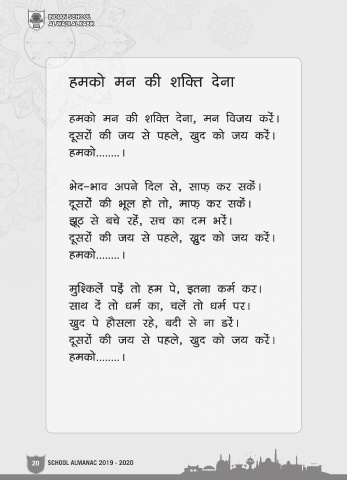 INDIAN SCHOOL
AL WADI AL KABIR
हमको मन की शक्ति देना
हमको मन की शक्ति देना, मन विजय करें।
दूसरों की जय से पहले, ख़ुद को जय करें।
हमको........।
भेद-भाव अपने दिल से, साफ़ कर सकें।
दूसरों की भूल हो तो, माफ़ कर सकें।
झूठ से बचे रहें, सच का दम भरें।
दूसरों की जय से पहले, ख़ुद को जय करें।
हमको........।
मुश्किलें पड़ें तो हम पे, इतना कर्म कर।
साथ दें तो धर्म का, चलें तो धर्म पर।
ख़ुद पे हौसला रहे, बदी से ना डरें।
दूसरों की जय से पहले, ख़ुद को जय करें।
हमको........।
20 SCHOOL ALMANAC 2019 - 2020